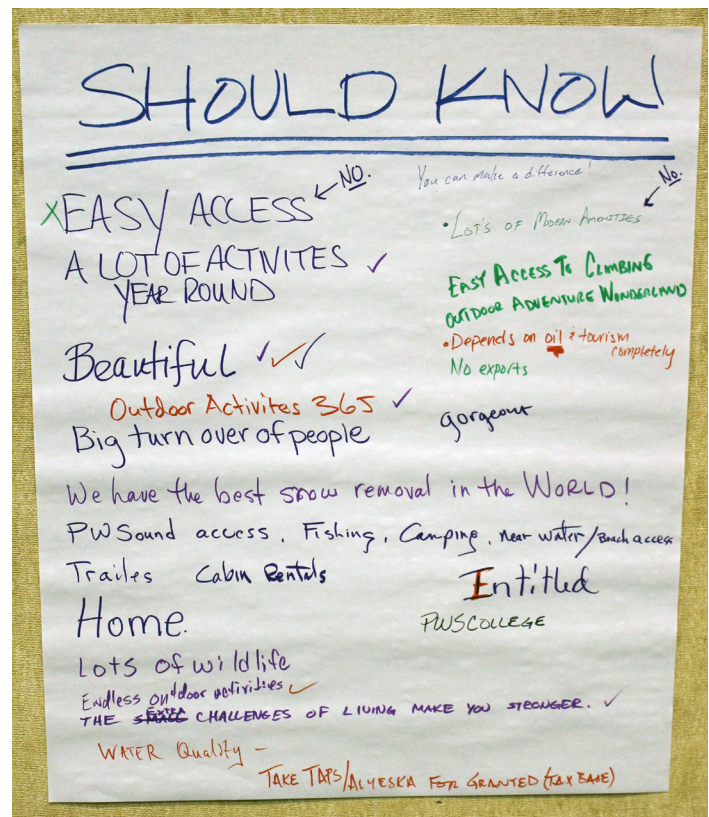 SHOULD KNOW
You can make a difference!
NO.
No.
X EASY ACCESS
• LOT'S OF MODERN AMONITIES
A LOT OF ACTIVITES ✓
YEAR ROUND
EASY ACCESS TO CLIMBING
OUTDOOR ADVENTURE WONDERLAND
Beautiful ✓✓✓
• Depends on oil & tourism
completely
No exports
Outdoor Activites 365 ✓
gorgeous
Big turn over of people
We have the best snow removal in the WORLD!
PWSound access, Fishing, Camping, near water/Beach access
Trailes Cabin Rentals
Entitled
Home.
PWSCOLLEGE
Lots of wildlife
Endless outdoor activities ✓
EXTRA
THE SMALL CHALLENGES OF LIVING MAKE YOU STRONGER. ✓
WATER Quality –
TAKE TAPS/ALYESKA FOR GRANTED (TAX BASE)